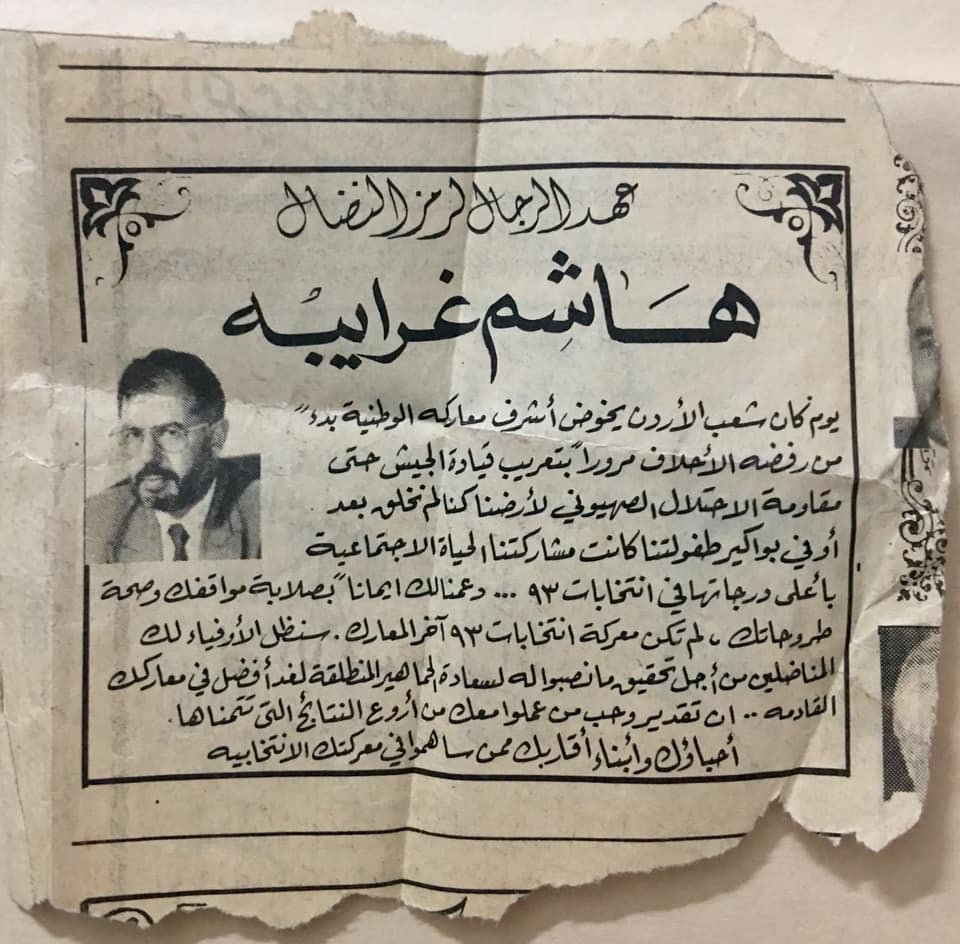 عهد الرجال لرمز النضال
هاشم غرايبه
يوم كان شعب الأردن يخوض أشرف معاركه الوطنية بدءً
من رفضه الأحلاف مروراً بتعريب قيادة الجيش حتى
مقاومة الاحتلال الصهيوني لأرضنا كنا لم نخلق بعد
أو في بواكير طفولتنا كانت مشاركتنا الحياة الاجتماعية
بأعلى درجاتها في انتخابات ٩٣ ... دعمنالك ايماناً بصلابة مواقفك وصحة
طروحاتك ، لم تكن معركة انتخابات ٩٣ آخر المعارك . سنظل الأوفياء لك
المناضلين من أجل تحقيق ما نصبوا له لسعادة الجماهير المنطلقة لغد أفضل في معاركك
القادمه .. ان تقدير وحب من عملوا معك من أروع النتائج التي تتمناها .
أحباؤك وأبناء أقاربك ممن ساهموا في معركتك الانتخابيه